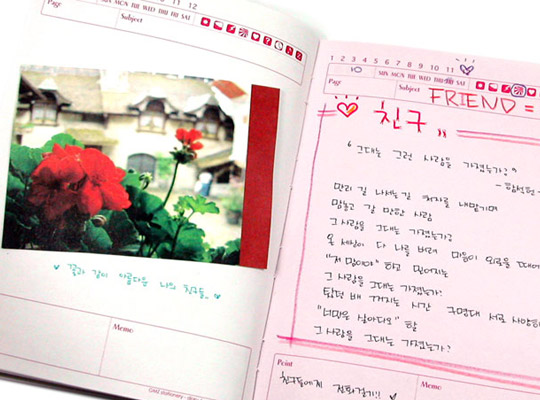 Page Subject SUN MON TUE WED THU FRI SAT
♥ 꽃과 같이 아름다운 나의 친구들.. ♥
Memo
1 2 3 4 5 6 7 8 9 10 11
10 SUN MON TUE WED THU FRI SAT
Page Subject
FRIEND =
친구 "
"그대는 그런 사람을 가졌는가?"
- 함석헌 -
만리 길 나서는 길 처자를 내맡기며
맘놓고 갈 만한 사람
그 사람을 그대는 가졌는가?
온 세상이 다 나를 버려 마음이 외로울 때에
"저 맘이야" 하고 믿어지는
그 사람을 그대는 가졌는가?
탔던 배 꺼지는 시간 구명대 서로 사양하
"너만은 살아다오" 할
그 사람을 그대는 가졌는가?
Point
친구들에게 전화걸기!! ♥
Memo